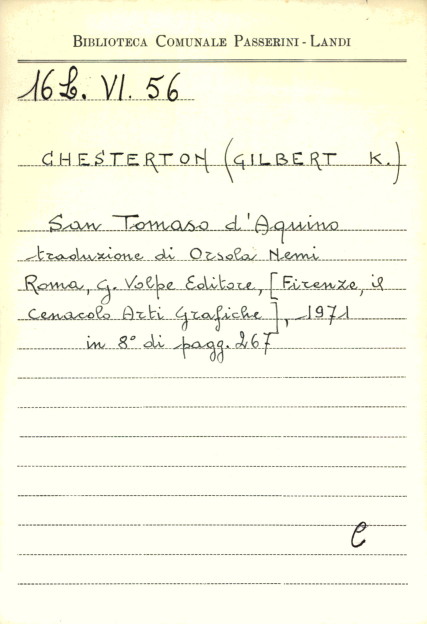 BIBLIOTECA COMUNALE PASSERINI - LANDI
16 L. VI. 56
CHESTERTON (GILBERT K.)
San Tomaso d'Aquino
traduzione di Orsola Nemi
Roma, G. Volpe Editore, [Firenze, il
Cenacolo Arti Grafiche], 1971
in 8° di pagg. 267
C